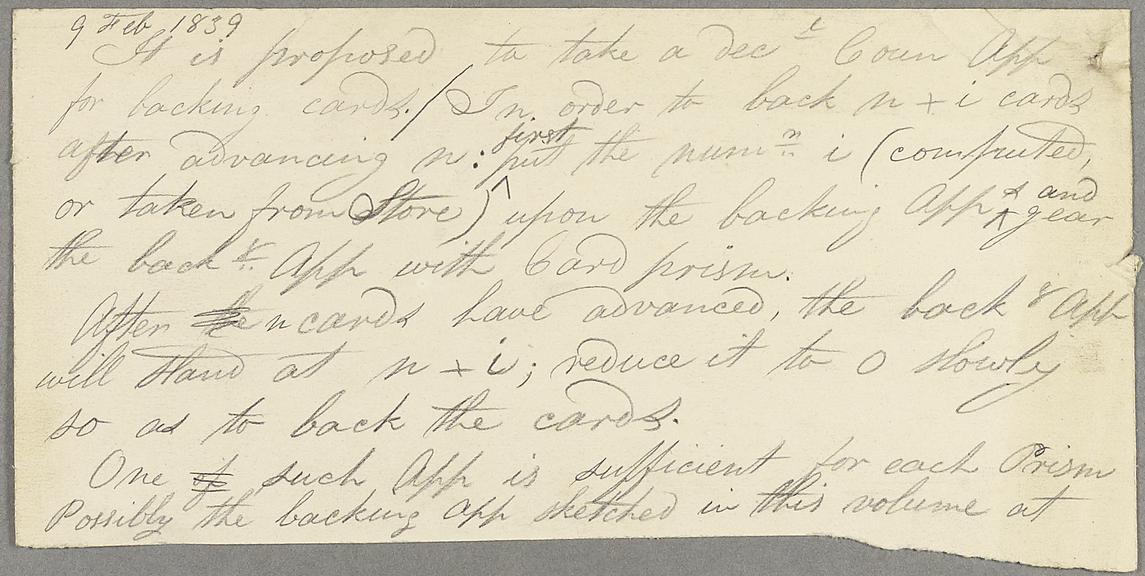 9 Feb 1839
It is proposed to take a dec^l Coun App
for backing cards. / In order to back n + i cards
after advancing n: first put the num^n i (computed,
or taken from Store) upon the backing App^s and gear
the back^g App with Card prism.
After the n cards have advanced, the back^g App
will stand at n + i; reduce it to 0 slowly
so as to back the cards.
One of such App is sufficient for each Prism
Possibly the backing app sketched in this volume at